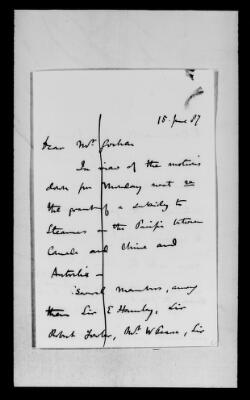 15 June 87
Dear Mr. Goschen
In view of the motions
down for Monday next re
the grant of a subsidy to
Steamers on the Pacific between
Canada and China and
Australia —
Several members, among
them Sir E Hamley, Sir
Robert Fowler, Mr. W Evans, Sir